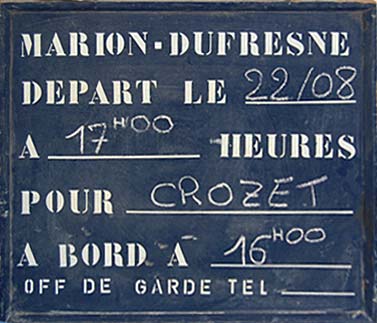 MARION-DUFRESNE
DEPART LE 22/08
A 17H00 HEURES
POUR CROZET
A BORD A 16H00
OFF DE GARDE TEL